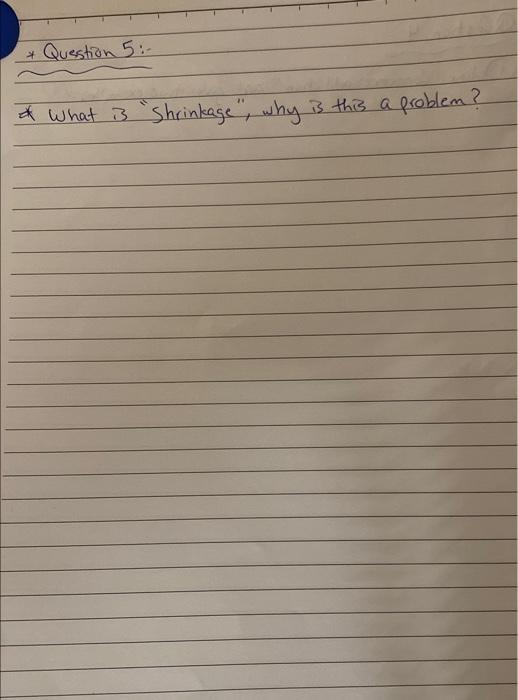 * Question 5:-
* What is "Shrinkage", why is this a problem?